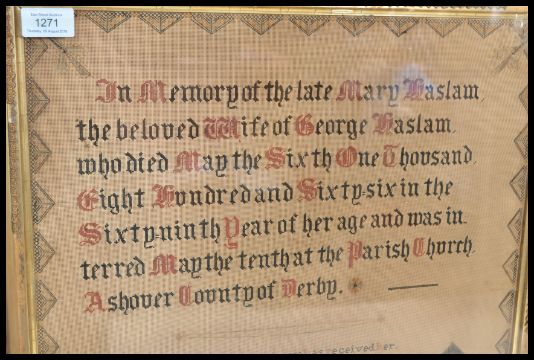 1271
In Memory of the late Mary Haslam
the beloved Wife of George Haslam
who died May the Sixth One Thousand
Eight Hundred and Sixty-six in the
Sixty-ninth Year of her age and was in
terred May the tenth at the Parish Church
Ashover County of Derby.
received her.